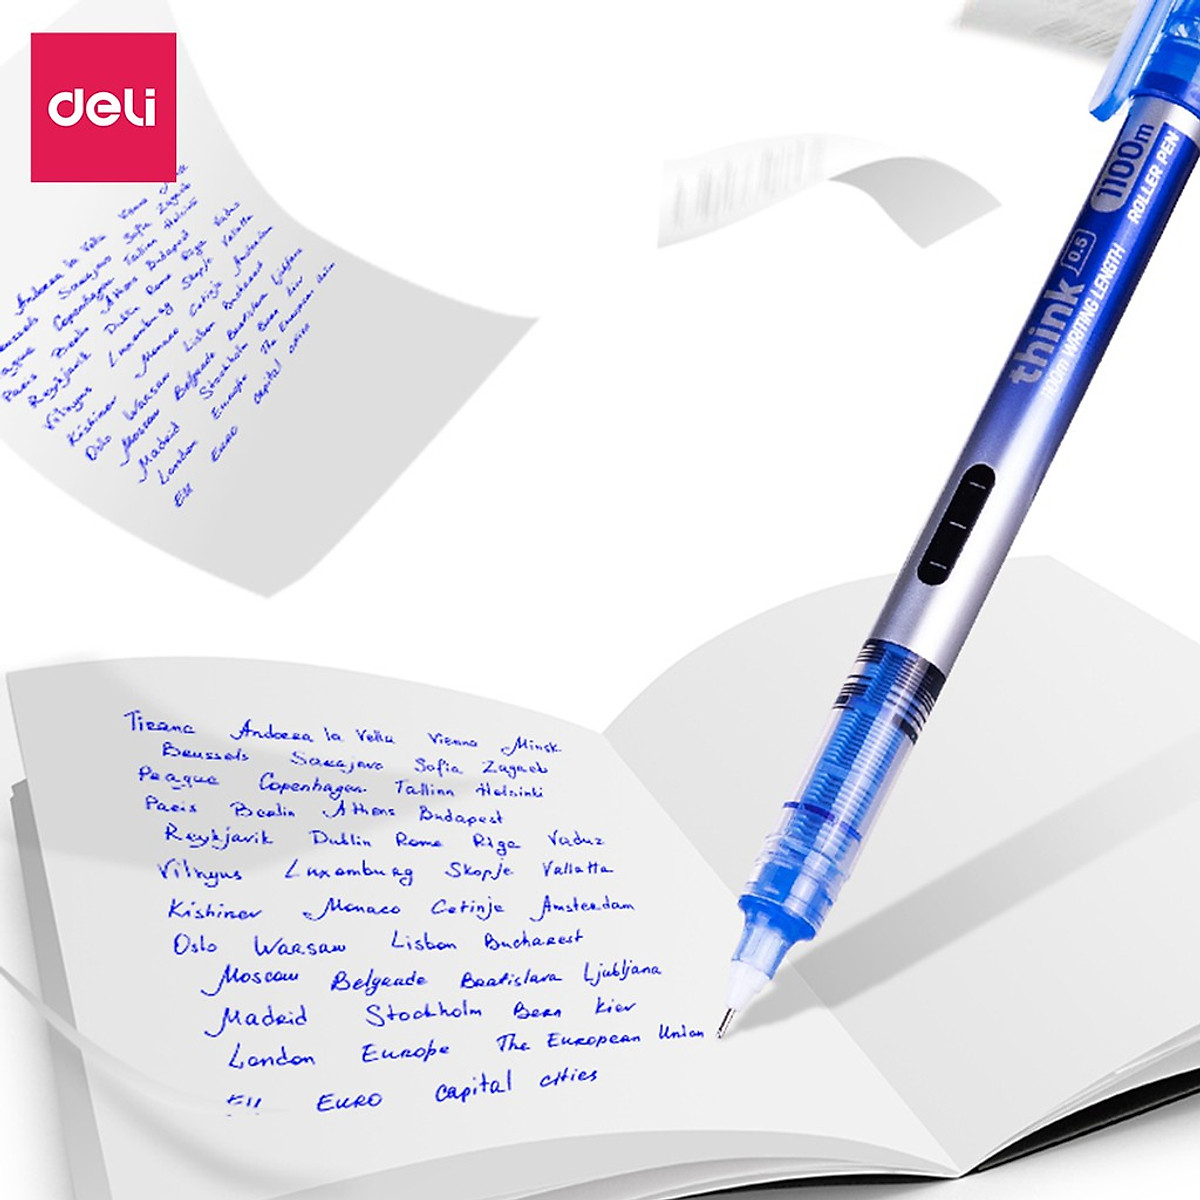 deli
1100m
ROLLER PEN
think 0.5
1100m WRITING LENGTH
Andorra la Vella Vienna
Sarajevo Sofia Zagreb
Copenhagen Tallinn Helsinki
Paris Berlin Athens Budapest
Reykjavik Dublin Rome Riga Vaduz
Vilnyus Luxemburg Skopje Vallatta
Kishinev Monaco Cetinje Amsterdam
Oslo Warsaw Lisbon Bucharest
Moscow Belgrade Bratislava Ljubljana
Madrid Stockholm Bern Kiev
London Europe The European Union
EU EURO capital cities
Tirana Andorra la Vella Vienna Minsk
Brussels Sarajevo Sofia Zagreb
Prague Copenhagen Tallinn Helsinki
Paris Berlin Athens Budapest
Reykjavik Dublin Rome Riga Vaduz
Vilnyus Luxemburg Skopje Vallatta
Kishinev Monaco Cetinje Amsterdam
Oslo Warsaw Lisbon Bucharest
Moscow Belgrade Bratislava Ljubljana
Madrid Stockholm Bern Kiev
London Europe The European Union
EU EURO capital cities